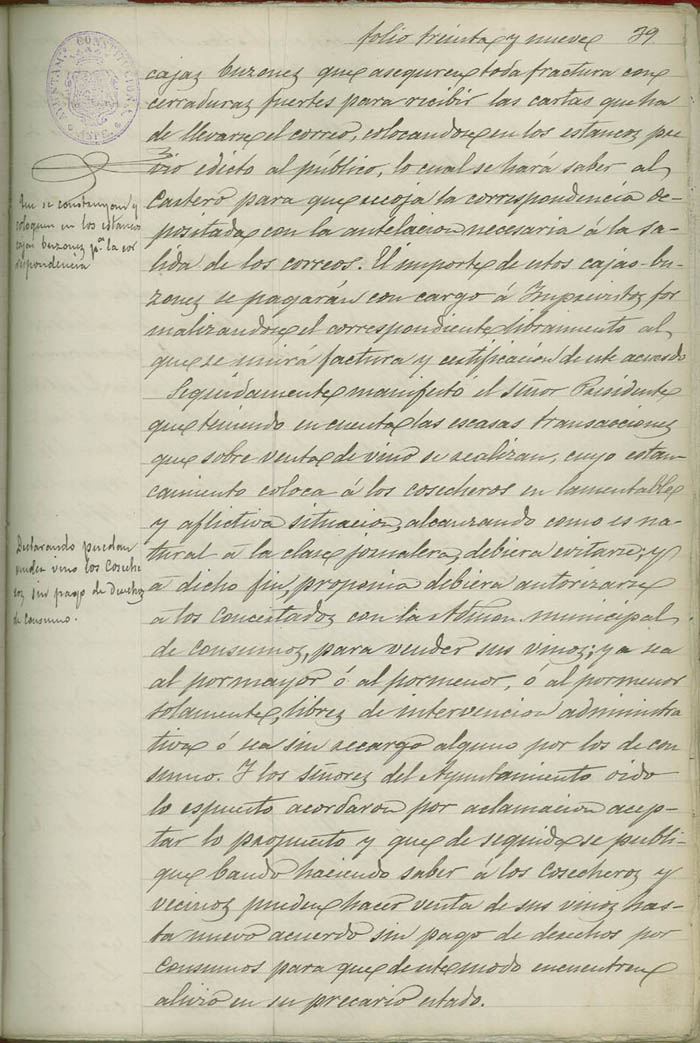 folio treinta y nueve 39
AYUNTAMto CONSTITUCIONAL
ASPE
cajas buzones que aseguren toda fractura con
cerraduras fuertes para recibir las cartas que ha
de llevarse el correo, colocandose en los estancos pre
vio edicto al público, lo cual se hará saber al
Cartero para que recoja la correspondencia de-
positada con la antelacion necesaria á la sa-
lida de los correos. El importe de estos cajas-bu-
zones se pagarán con cargo á Imprevistos for
malizandose el correspondiente libramiento al
que se unirá factura y certificacion de este acuerdo
Que se construyan y
coloquen en los estancos
cajas buzones pa. la cor
respondencia
Seguidamente manifestó el señor Presidente
que teniendo en cuenta las escasas transacciones
que sobre venta de vino se realizan, cuyo estan-
camiento coloca á los cosecheros en lamentable
y aflictiva situacion, alcanzando como es na-
tural á la clase jornalera, debiera evitarse; y
á dicho fin, proponia debiera autorizarse
á los concertados con la Admon. municipal
de consumos, para vender sus vinos; ya sea
al pormayor ó al pormenor, ó al pormenor
solamente, libres de intervencion administra
tiva ó sea sin recargo alguno por los de con
sumo. Y los señores del Ayuntamiento oido
lo espuesto acordaron por aclamacion acep-
tar lo propuesto y que de seguida se publi-
que bando haciendo saber á los cosecheros y
vecinos pueden hacer venta de sus vinos has-
ta nuevo acuerdo sin pago de derechos por
consumos para que de este modo encuentren
alivio en su precario estado.
Declarando puedan
vender vino los Coseche
ros sin pago de derechos
de consumo.